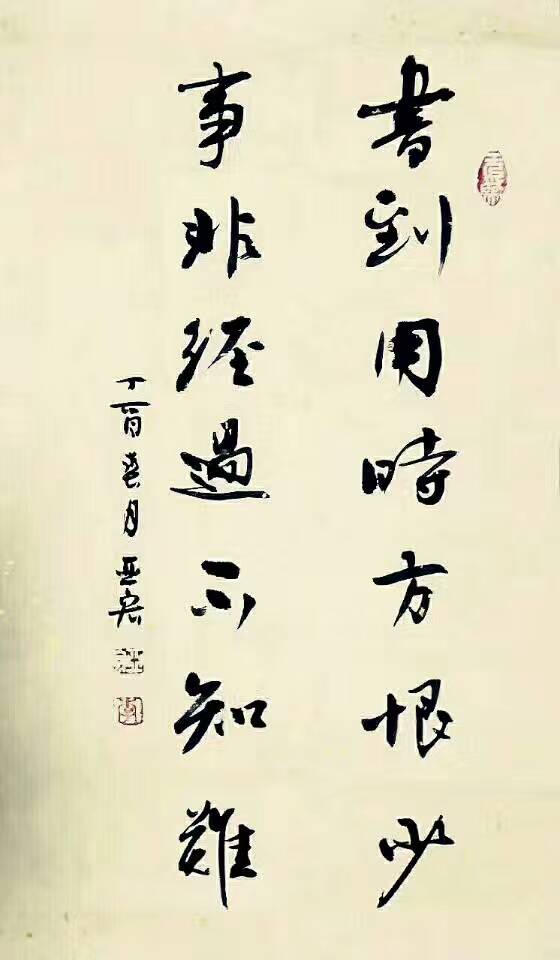 書到用時方恨少
事非經過不知難
丁酉春月